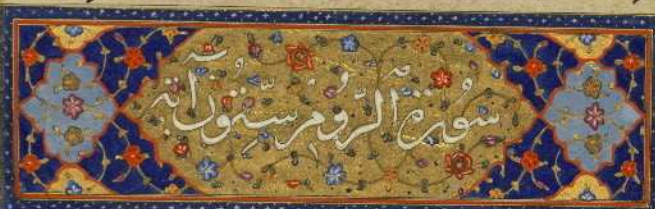 سورة الروم ستون آية